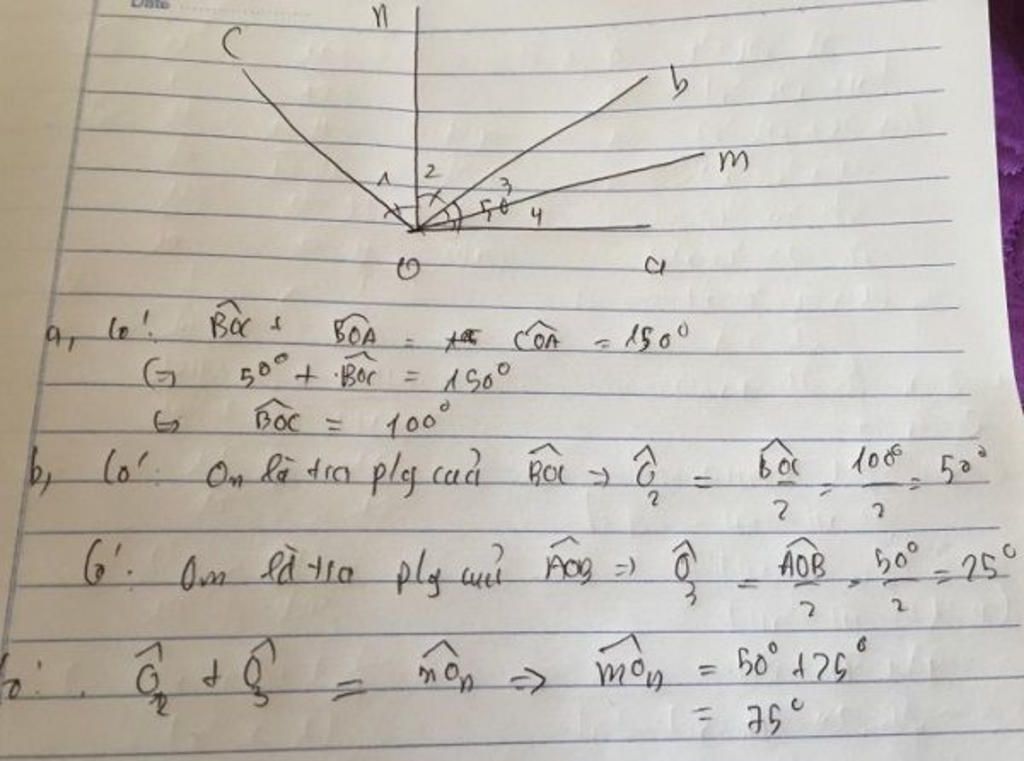 Date
n
C
b
m
1
2
3
50
4
O
a
a, Có: BOC + BOA = COA = 150°
⇔ 50° + BOC = 150°
⇔ BOC = 100°
b, Có: On là tia plg của BOC → O2 = BOC/2 = 100°/2 = 50°
Có: Om là tia plg của AOB => O3 = AOB/2 = 50°/2 = 25°
Có: O2 + O3 = mOn => mOn = 50° + 25°
= 75°